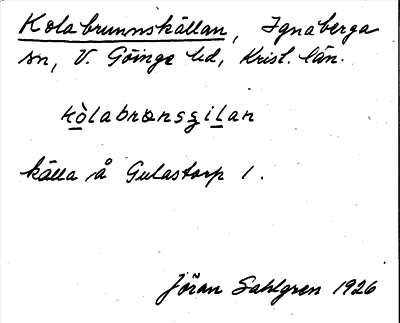 Kolabrunnskällan, Ignaberga
sn, V. Göinge hd, Krist. län.
kòlabrønsʒilan
källa å Gulastorp 1.
Jöran Sahlgren 1926